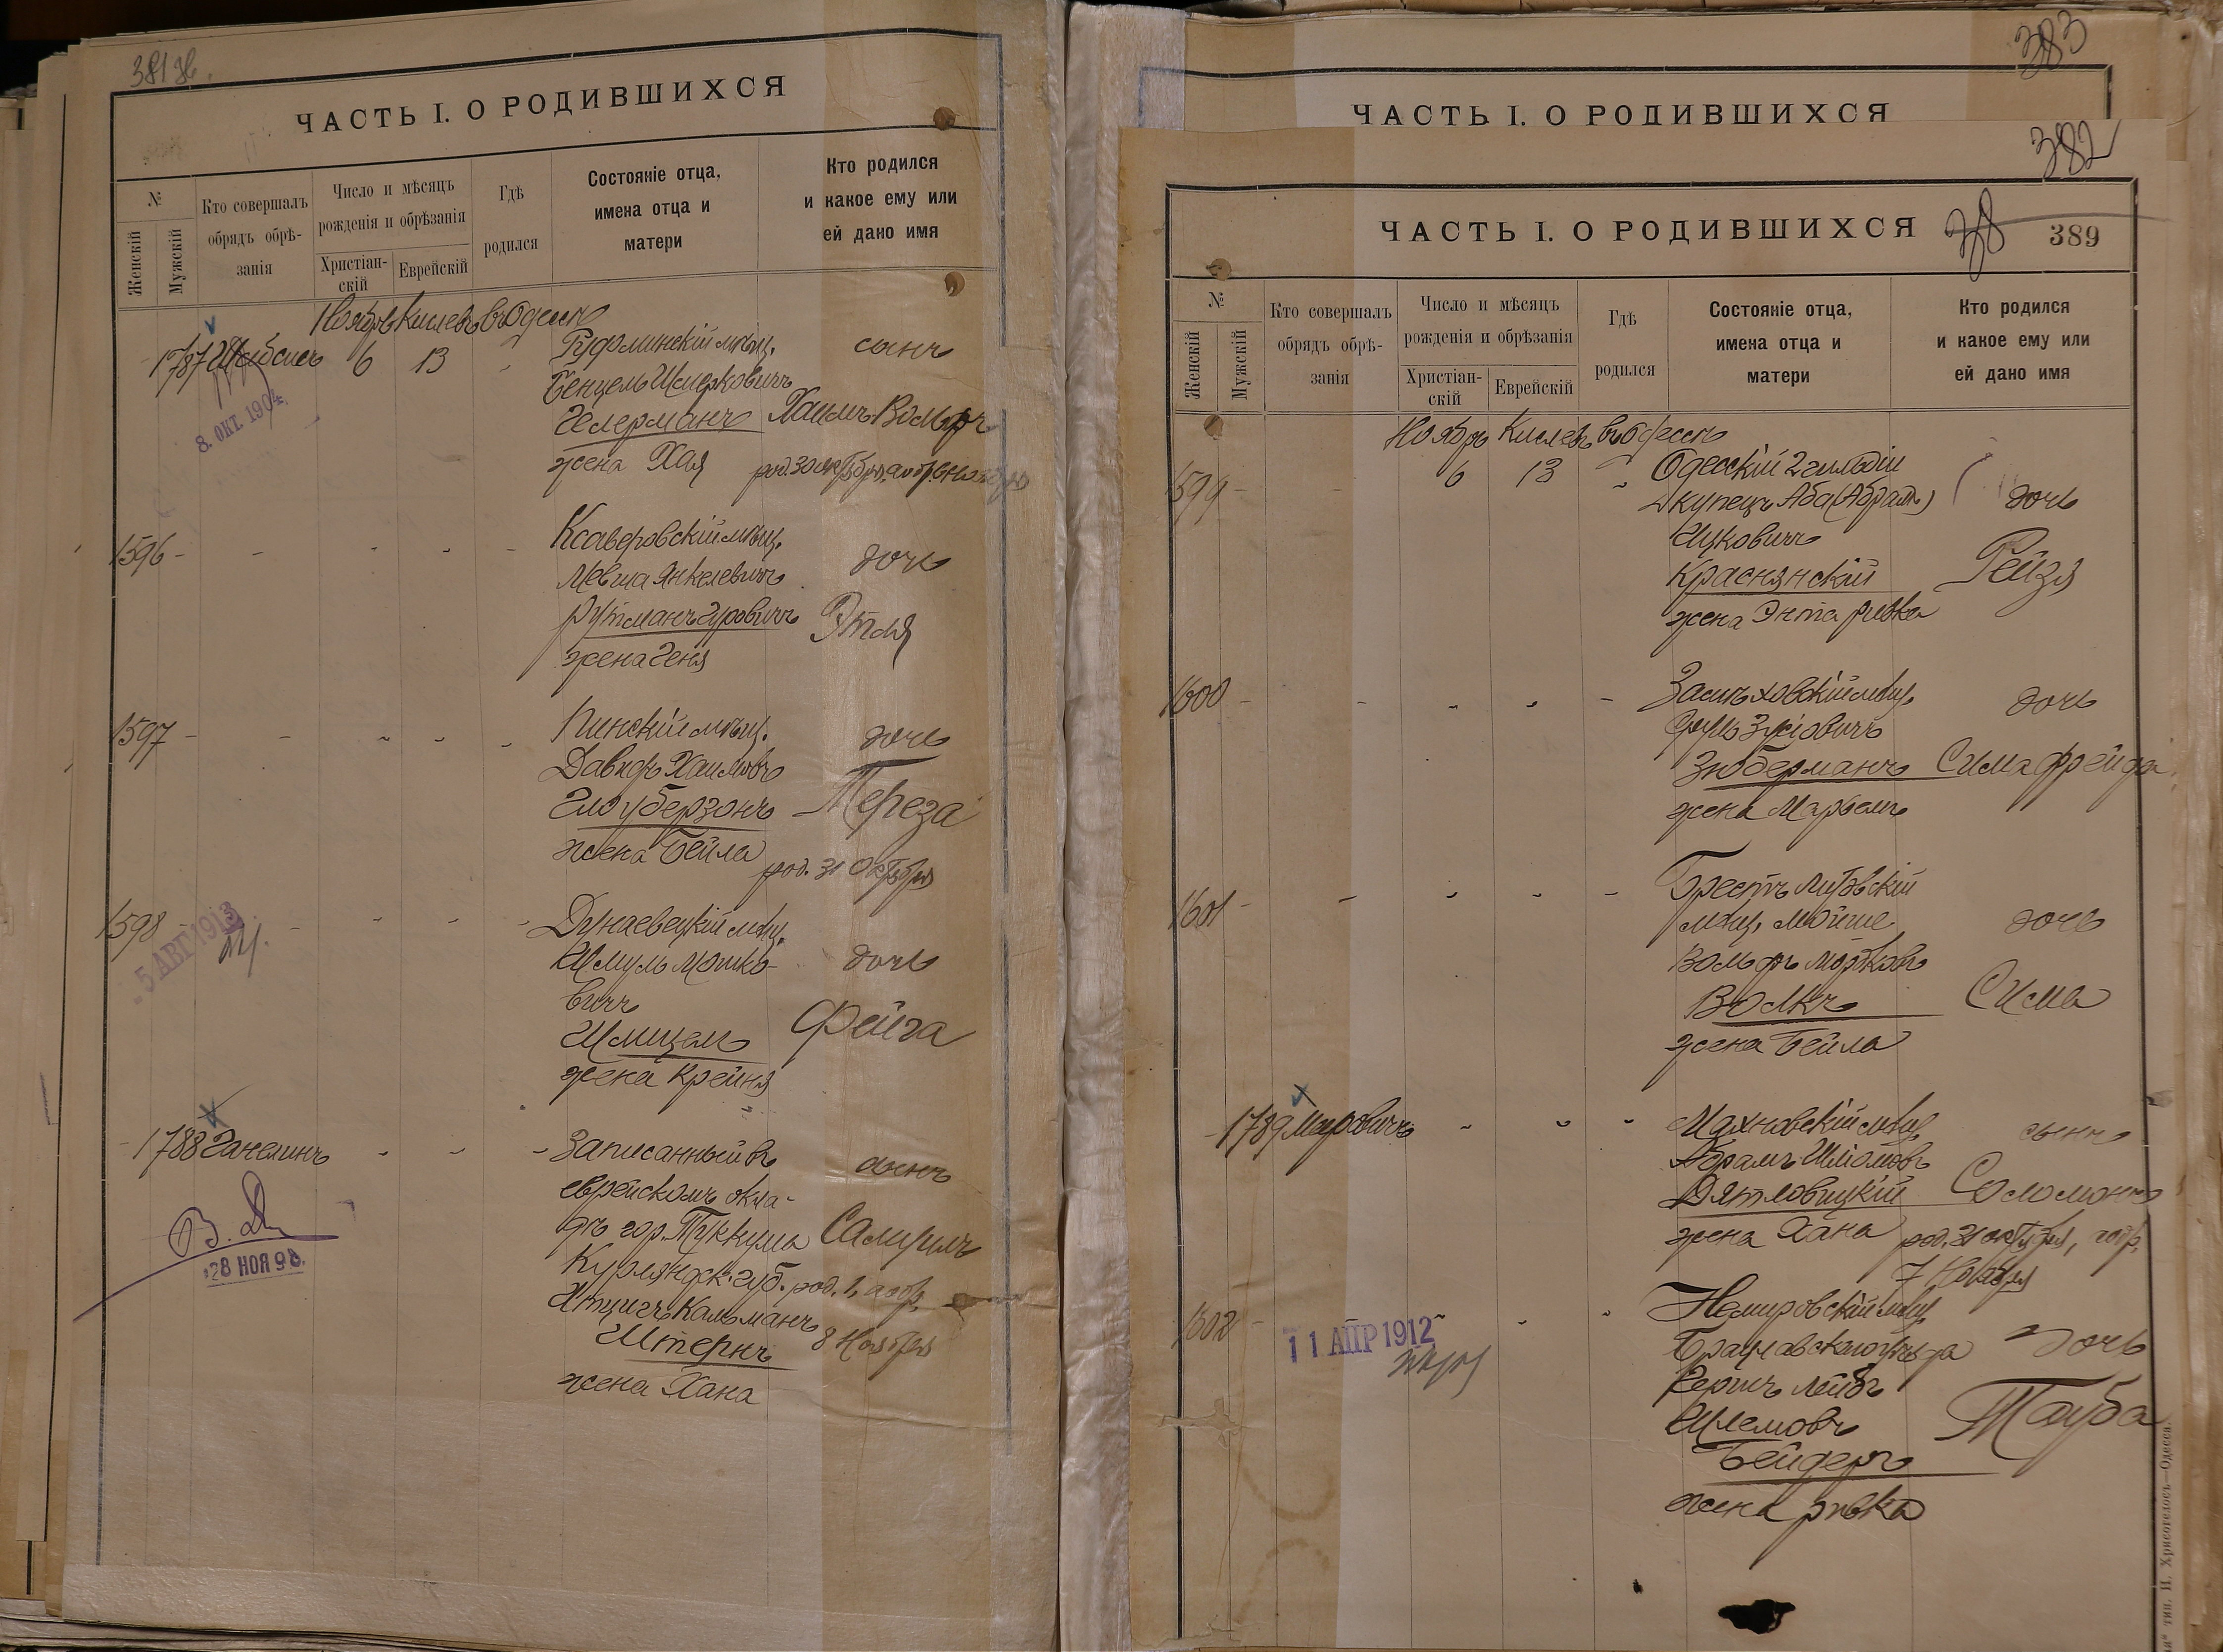 ЧАСТЬ I. О РОДИВШИХСЯ
№
Женскій
Мужскій
Кто совершалъ
обрядъ обрѣ-
занія
Число и мѣсяцъ
рожденія и обрѣзанія
Христіан-
скій
Еврейскій
Гдѣ
родился
Состояніе отца,
имена отца и
матери
Кто родился
и какое ему или
ей дано имя
Ноябрь Кислевъ въ Одессѣ
1787 6 13 мѣщ. сынъ
8. ОКТ. 1904.
Хаимъ Вольфъ
жена Хая род. 30 октября, а обр. 6 ноября
1596 - - - - - Ксаверовскій мѣщ.
Мевша Янкелевичъ дочь
Рутманъ Гуровичъ Этля
жена Геня
1597 - - - - - Пинскій мѣщ. дочь
Давидъ Хаимовъ
Глоуберзонъ Тереза
жена Бейла род. 31 Октября
1598 - - - - - Дунаевецкій мѣщ.
5 АВГ 1913
Шмуль Мошко- дочь
вичъ
Фейга
жена Крейня
- 1788 Ганелинъ - - - Записанный въ
еврейскомъ окла- сынъ
дѣ гор. Туккума Самуилъ
В. Д.
28 НОЯ 98.
Курляндск. губ. род. 1, а обр.
Итцигъ Кальманъ
Штернъ 8 Ноября
жена Хана
383
ЧАСТЬ I. О РОДИВШИХСЯ
382
ЧАСТЬ I. О РОДИВШИХСЯ
389
№
Женскій
Мужскій
Кто совершалъ
обрядъ обрѣ-
занія
Число и мѣсяцъ
рожденія и обрѣзанія
Христіан-
скій
Еврейскій
Гдѣ
родился
Состояніе отца,
имена отца и
матери
Кто родился
и какое ему или
ей дано имя
Ноябрь Кислевъ въ Одессѣ
1599 - - 6 13 Одесскій 2 гильдіи
купецъ Аба (Абрамъ) дочь
Ицковичъ
Краснянскій Рейзя
жена Энта Ривка
1600 - - - - - мѣщ. дочь
Зюберманъ Сима Фрейда
жена Марьемъ
1601 - - - - - Брестъ Литовскій
мѣщ. Мойше дочь
Вольфъ Мортковъ
Волкъ Сима
жена Бейла
- 1789 Меировичъ - - - Махновскій мѣщ. сынъ
Абрамъ Шліомовъ
Дятловицкій Соломонъ
жена Хана род. 31 октября, а обр.
7 Ноября
1602 - - - - Немировскій мѣщ.
11 АПР 1912
Брацлавскаго уѣзда дочь
Гершъ Лейбъ
Шлемовъ Тауба
Бейдеръ
жена Ривка
тип. И. Хрисогелосъ—Одесса.